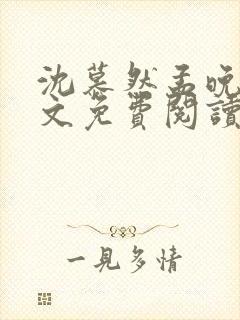 沈慕然孟晚
文免費閱讀
一見多情